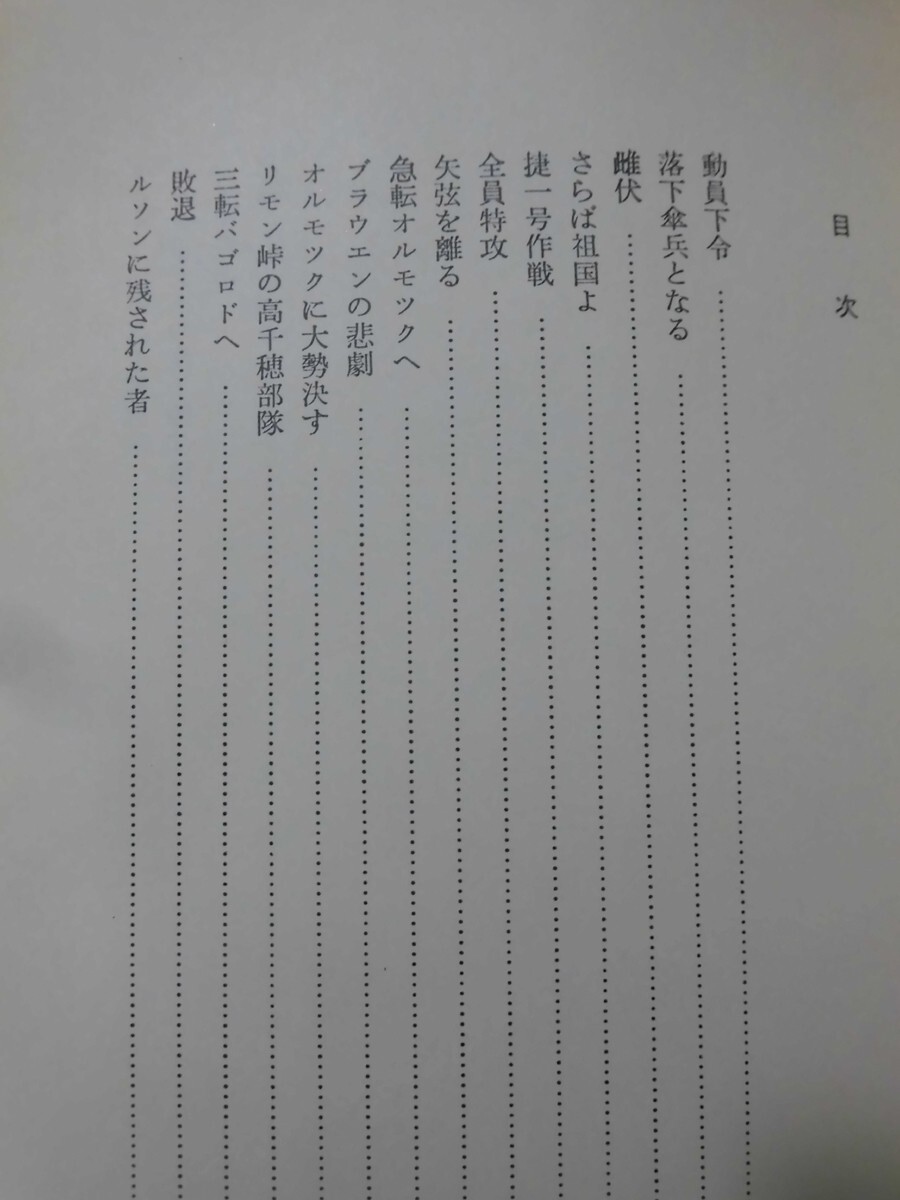 目次
動員下令
落下傘兵となる
雌伏
さらば祖国よ
捷一号作戦
全員特攻
矢弦を離る
急転オルモツクへ
ブラウエンの悲劇
オルモツクに大勢決す
リモン峠の高千穂部隊
三転バゴロドへ
敗退
ルソンに残された者